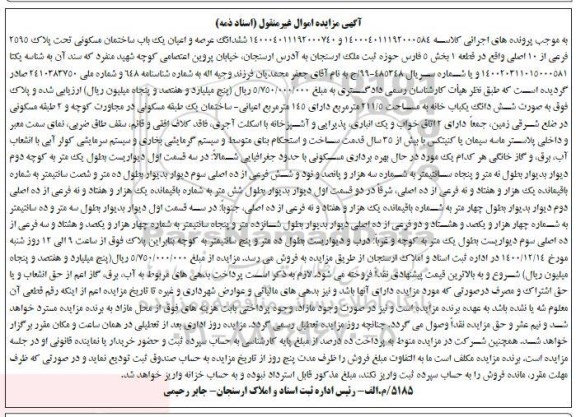 آگهی مزایده اموال غیرمنقول (اسناد ذمه)
به موجب پرونده های اجرائی کلاسه ۱۴۰۰۰۴۰۱۱۱۹۲۰۰۰۵۸۴ و ۱۴۰۰۰۴۰۱۱۱۹۲۰۰۰۷۴۰ ششدانگ عرصه و اعیان یک باب ساختمان مسکونی تحت پلاک ۲۵۹۵
فرعی از ۱۰ اصلی واقع در قطعه ۱ بخش ۵ فارس حوزه ثبت ملک ارسنجان به آدرس ارسنجان، خیابان پروین اعتصامی کوچه شهید منفرد که سند آن به شناسه یکتا
۱۴۰۰۲۰۳۱۱۰۱۵۰۰۰۵۸۱ و با شماره سریال ۴۸۵۳۴۸ به نام آقای جعفر محمدیان فرزند وجیه اله به شماره شناسنامه ۶۴۸ و شماره ملی ۲۴۱۰۳۸۳۷۵۰ صادر
گردیده است که طبق نظر هیأت کارشناسان رسمی دادگستری به مبلغ ۵/۷۵۰/۰۰۰/۰۰۰ ریال (پنج میلیارد و هفتصد و پنجاه میلیون ریال) ارزیابی شده و پلاک
فوق به صورت شش دانگ یکباب خانه به مساحت ۲۱۱/۵ مترمربع دارای ۱۴۵ مترمربع اعیانی- ساختمان یک طبقه مسکونی در مجاورت کوچه و ۲ طبقه مسکونی
در ضلع شرقی زمین، جمعاً دارای ۲ اتاق خواب و یک انباری، پذیرایی و آشپزخانه با اسکلت آجری، فاقد کلاف افقی و قائم، سقف طاق ضربی، نمای سمت معبر
و داخلی پلاستر ماسه سیمان با کنیتکس با بیش از ۳۵ سال قدمت ساخت و استحکام بنای متوسط و سیستم گرمایشی بخاری و سیستم سرمایشی کولر آبی با انشعاب
آب، برق، و گاز خانگی هر کدام یک مورد در حال بهره برداری مسکونی با حدود جغرافیایی شمالاً: در سه قسمت اول دیواریست بطول یک متر به کوچه دوم
دیوار بدیوار بطول نه متر و پنجاه سانتیمتر به شماره سه هزار و پانصد و نود و شش فرعی از ده اصلی سوم دیوار بدیوار بطول ده متر و شصت سانتیمتر به شماره
باقیمانده یک هزار و هفتاد و نه فرعی از ده اصلی، شرقا در دو قسمت اول دیوار بدیوار بطول شش متر به شماره باقیمانده یک هزار و هفتاد و نه فرعی از ده اصلی
دوم دیوار بدیوار بطول چهار متر به شماره باقیمانده یک هزار و هفتاد و نه فرعی از ده اصلی، جنوبا: در سه قسمت اول دیوار بدیوار بطول سه متر و ده سانتیمتر
به شماره چهار هزار و یکصد و هشتاد و دو فرعی از ده اصلی دیوار بدیوار بطول شانزده متر و پنجاه سانتیمتر به شماره چهار هزار و یکصد و هشتاد و سه فرعی از
ده اصلی سوم دیواریست بطول یک متر به کوچه و غربا: درب و دیواریست بطول ده متر و پنج سانتیمتر به کوچه بنابراین پلاک فوق از ساعت ۹ الی ۱۲ روز شنبه
مورخ ۱۴۰۰/۱۲/۱۴ در اداره ثبت اسناد و املاک ارسنجان از طریق مزایده به فروش می رسد. مزایده از مبلغ ۵/۷۵۰/۰۰۰/۰۰۰ ریال(پنج میلیارد و هفتصد و پنجاه
میلیون ریال) شروع و به بالاترین قیمت پیشنهادی نقداً فروخته می شود. لازم به ذکر است پرداخت بدهی های مربوط به آب، برق، گاز اعم از حق انشعاب و یا
حق اشتراک و مصرف درصورتی که مورد مزایده دارای آنها باشد و نیز بدهی های مالیاتی و عوارض شهرداری و غیره تا تاریخ مزایده اعم از اینکه رقم قطعی آن
معلوم شه یا نشده باشد به عهده برنده مزایده است و نیز در صورت وجود مازاد، وجوه پرداختی بابت هزینه های فوق از محل مازاد به برنده مزایده مسترد خواهد
شد و نیم عشر و حق مزایده نقداً وصول می گردد. چنانچه روز مزایده تعطیل رسمی گردد. مزایده روز اداری بعد از تعطیلی در همان ساعت و مکان مقرر برگزار
خواهد شد. همچنین شرکت در مزایده منوط به پرداخت ده درصد از مبلغ پایه کارشناسی به حساب سپرده ثبت و حضور خریدار یا نماینده قانونی او در جلسه
مزایده است. برنده مزایده مکلف است ما به التفاوت مبلغ فروش را ظرف مدت پنج روز از تاریخ مزایده به حساب صندوق ثبت تودیع نماید و در صورتی که ظرف
مهلت مقرر، مانده فروش را به حساب سپرده ثبت واریز نکند، مبلغ مذکور قابل استرداد نبوده و به حساب خزانه واریز خواهد شد.
۵۱۸۵/م.الف- رئیس اداره ثبت اسناد و املاک ارسنجان- جابر رحیمی